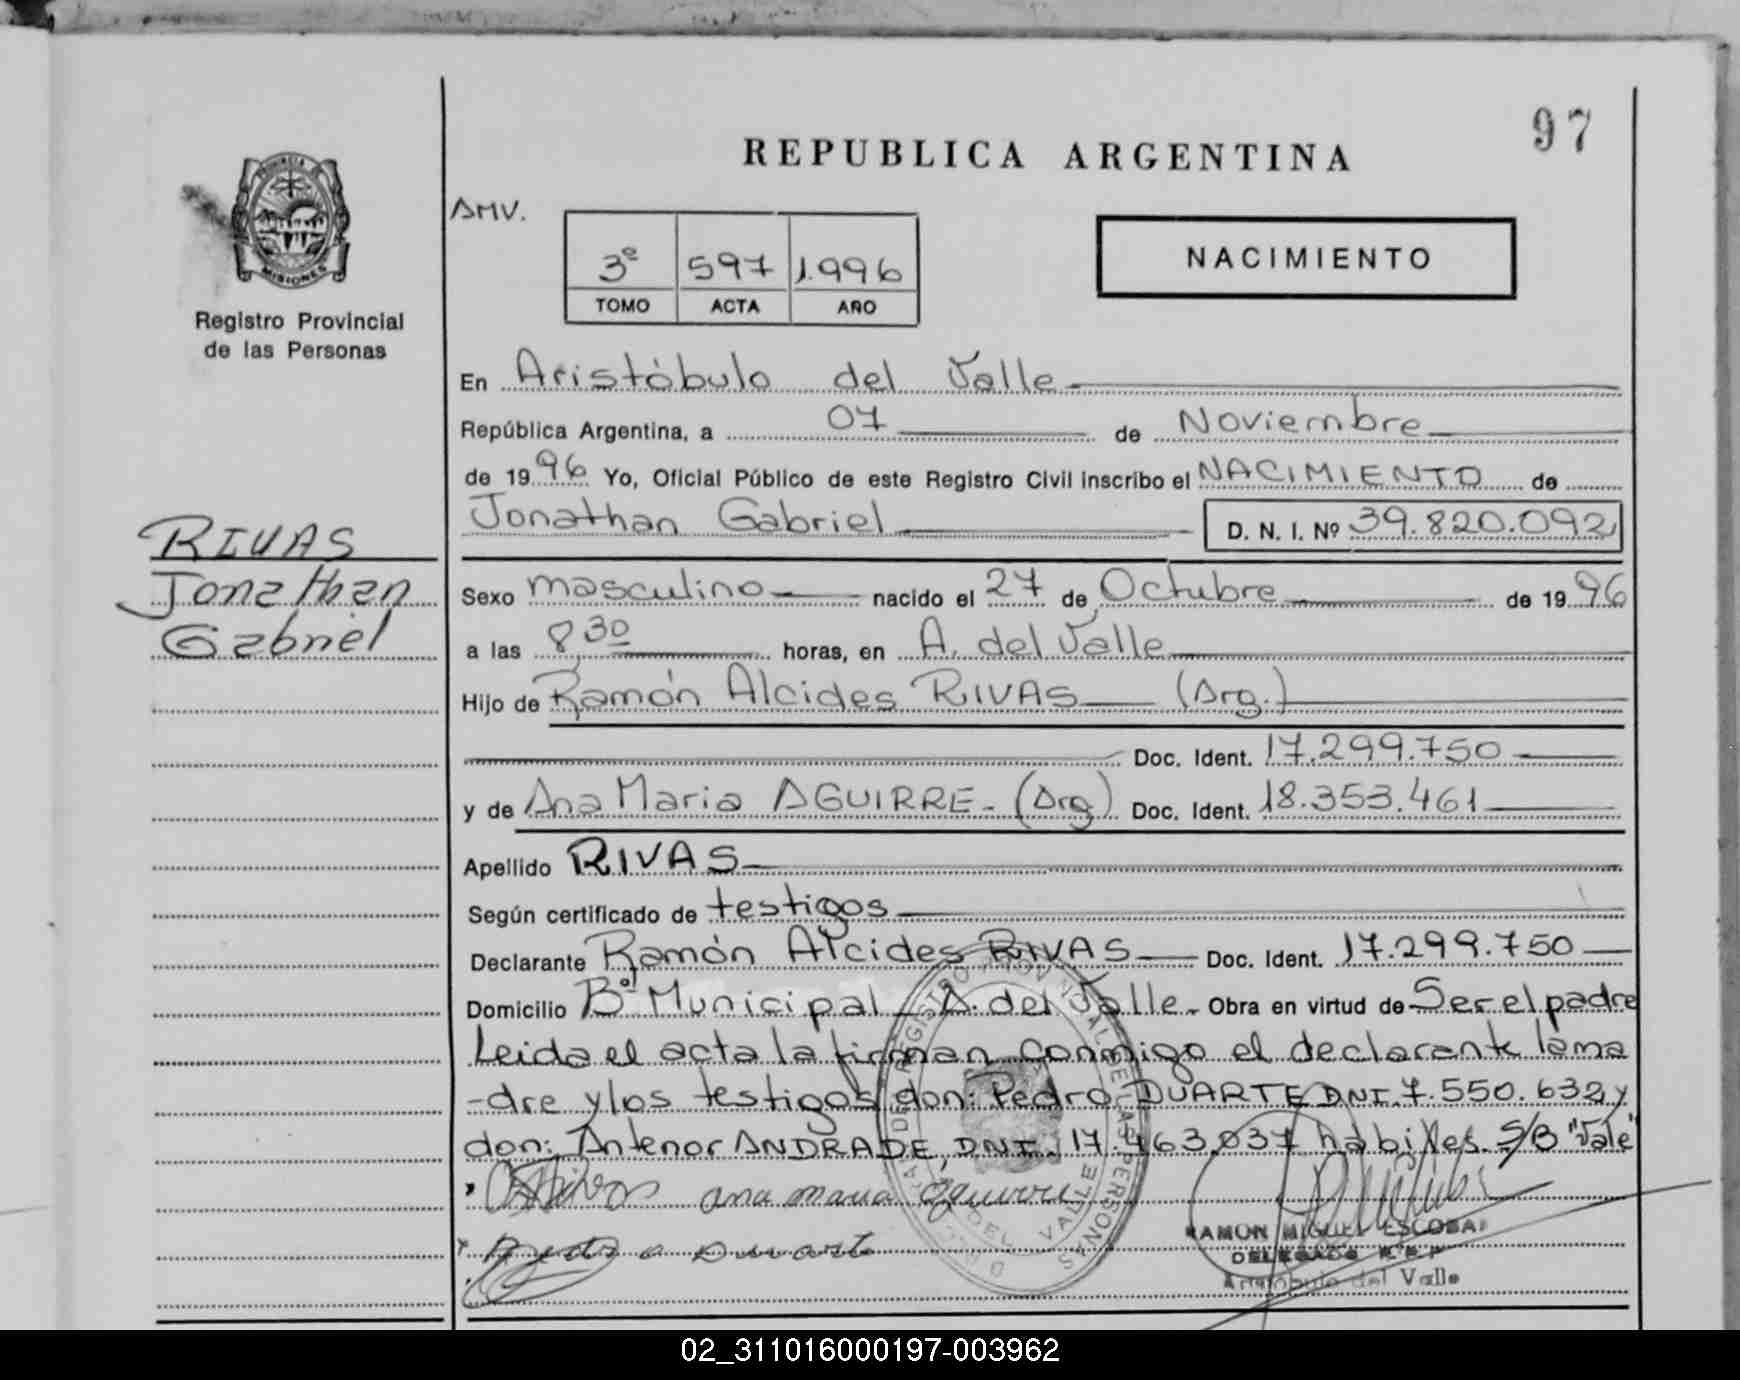 97
REPUBLICA ARGENTINA
PROVINCIA DE
MISIONES
Registro Provincial
de las Personas
AMV.
3º 597 1.996
TOMO ACTA AÑO
NACIMIENTO
RIVAS
Jonathan
Gabriel
En Aristóbulo del Valle
República Argentina, a 07 de Noviembre
de 1996 Yo, Oficial Público de este Registro Civil inscribo el NACIMIENTO de
Jonathan Gabriel D. N. I. Nº 39.820.092
Sexo masculino nacido el 27 de Octubre de 1996
a las 8 30 horas, en A. del Valle
Hijo de Ramón Alcides RIVAS (Arg.)
Doc. Ident. 17.299.750
y de Ana Maria AGUIRRE - (Arg) Doc. Ident. 18.353.461
Apellido RIVAS
Según certificado de testigos
Declarante Ramón Alcides RIVAS Doc. Ident. 17.299.750
Domicilio Bº Municipal - A. del Valle - Obra en virtud de Ser el padre
Leida el acta la firman conmigo el declarante la ma
-dre y los testigos don: Pedro DUARTE DNI. 7.550.632 y
don: Antenor ANDRADE, DNI. 17.463.037 habiles. S/B "Vale"
ana maria aguirre
Duarte
RAMON MIGUEL ESCOBAR
DELEGADO R.P.P
Aristóbulo del Valle
REGISTRO PROVINCIAL DE LAS PERSONAS
DEL VALLE
02_311016000197-003962